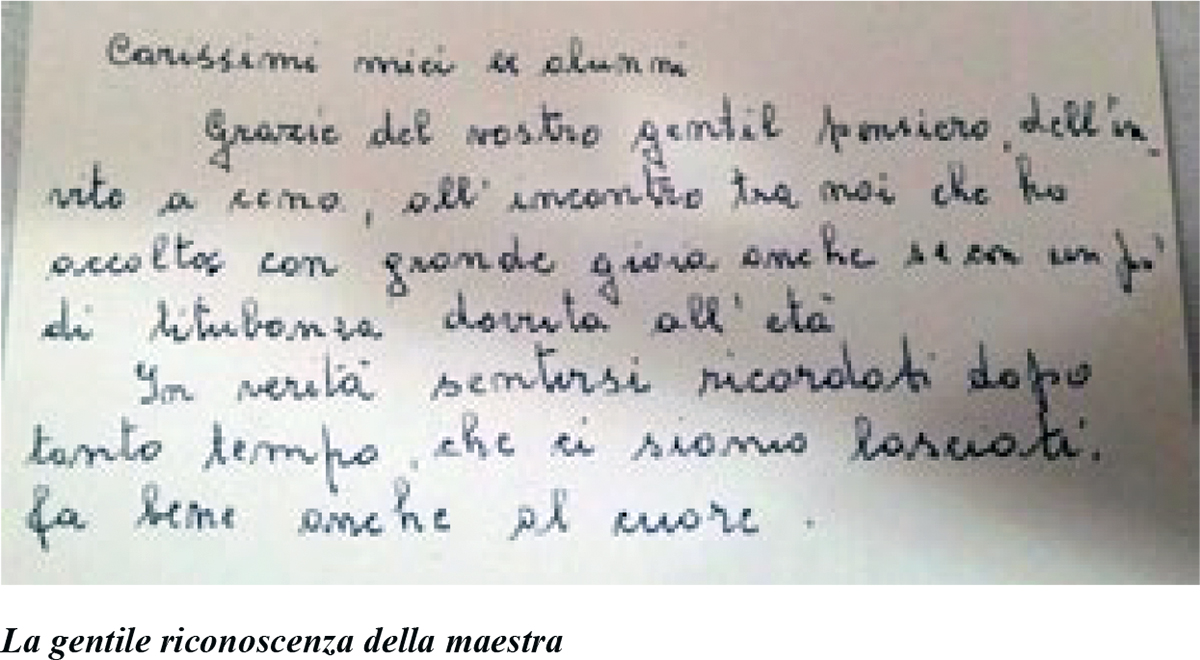 Carissimi miei ex alunni
Grazie del vostro gentil pensiero, dell'in_
vito a cena, all'incontro tra noi che ho
accolto con grande gioia anche se con un po'
di titubanza dovuta all'età
In verità sentirsi ricordati dopo
tanto tempo, che ci siamo lasciati,
fa bene anche al cuore.
La gentile riconoscenza della maestra